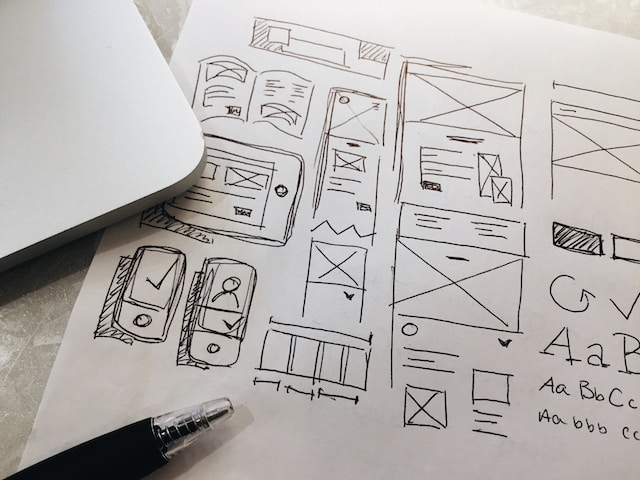 AaB
Aa Bb Cc
Aa bbb cc